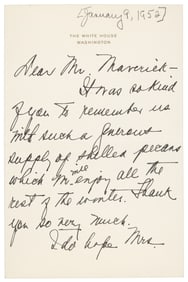 [January 9, 1952]
THE WHITE HOUSE
WASHINGTON
Dear Mr. Maverick-
It was so kind
of you to remember us
with such a generous
supply of shelled pecans
which we'll enjoy all the
rest of the winter. Thank
you so very much.
I do hope Mrs.